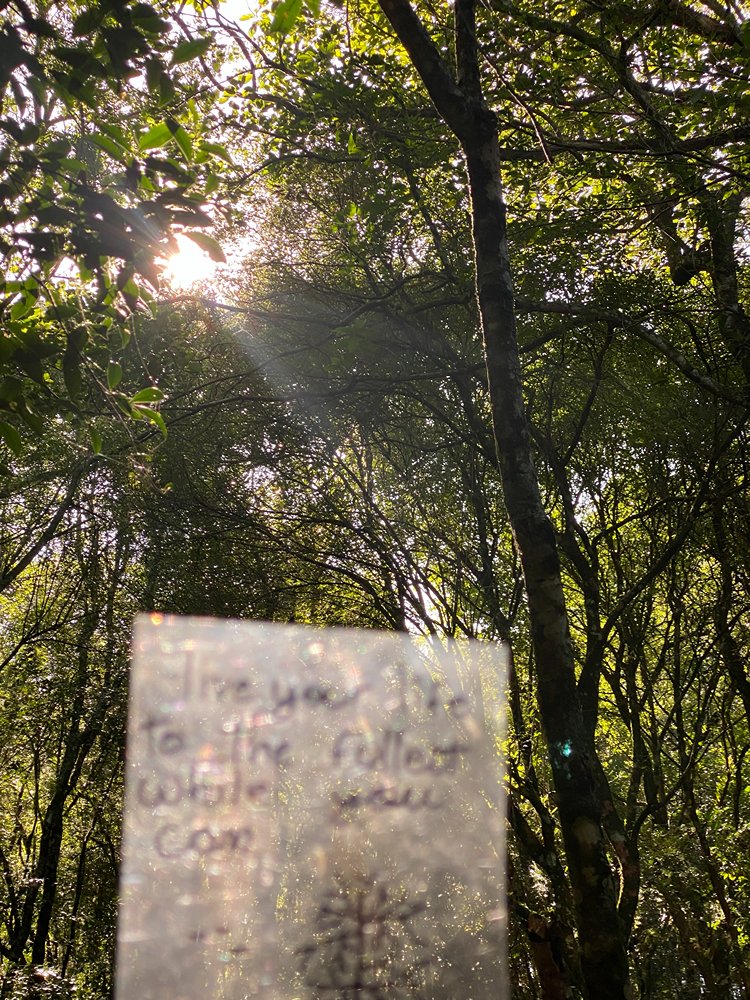 live your life
to the fullest
while you
can